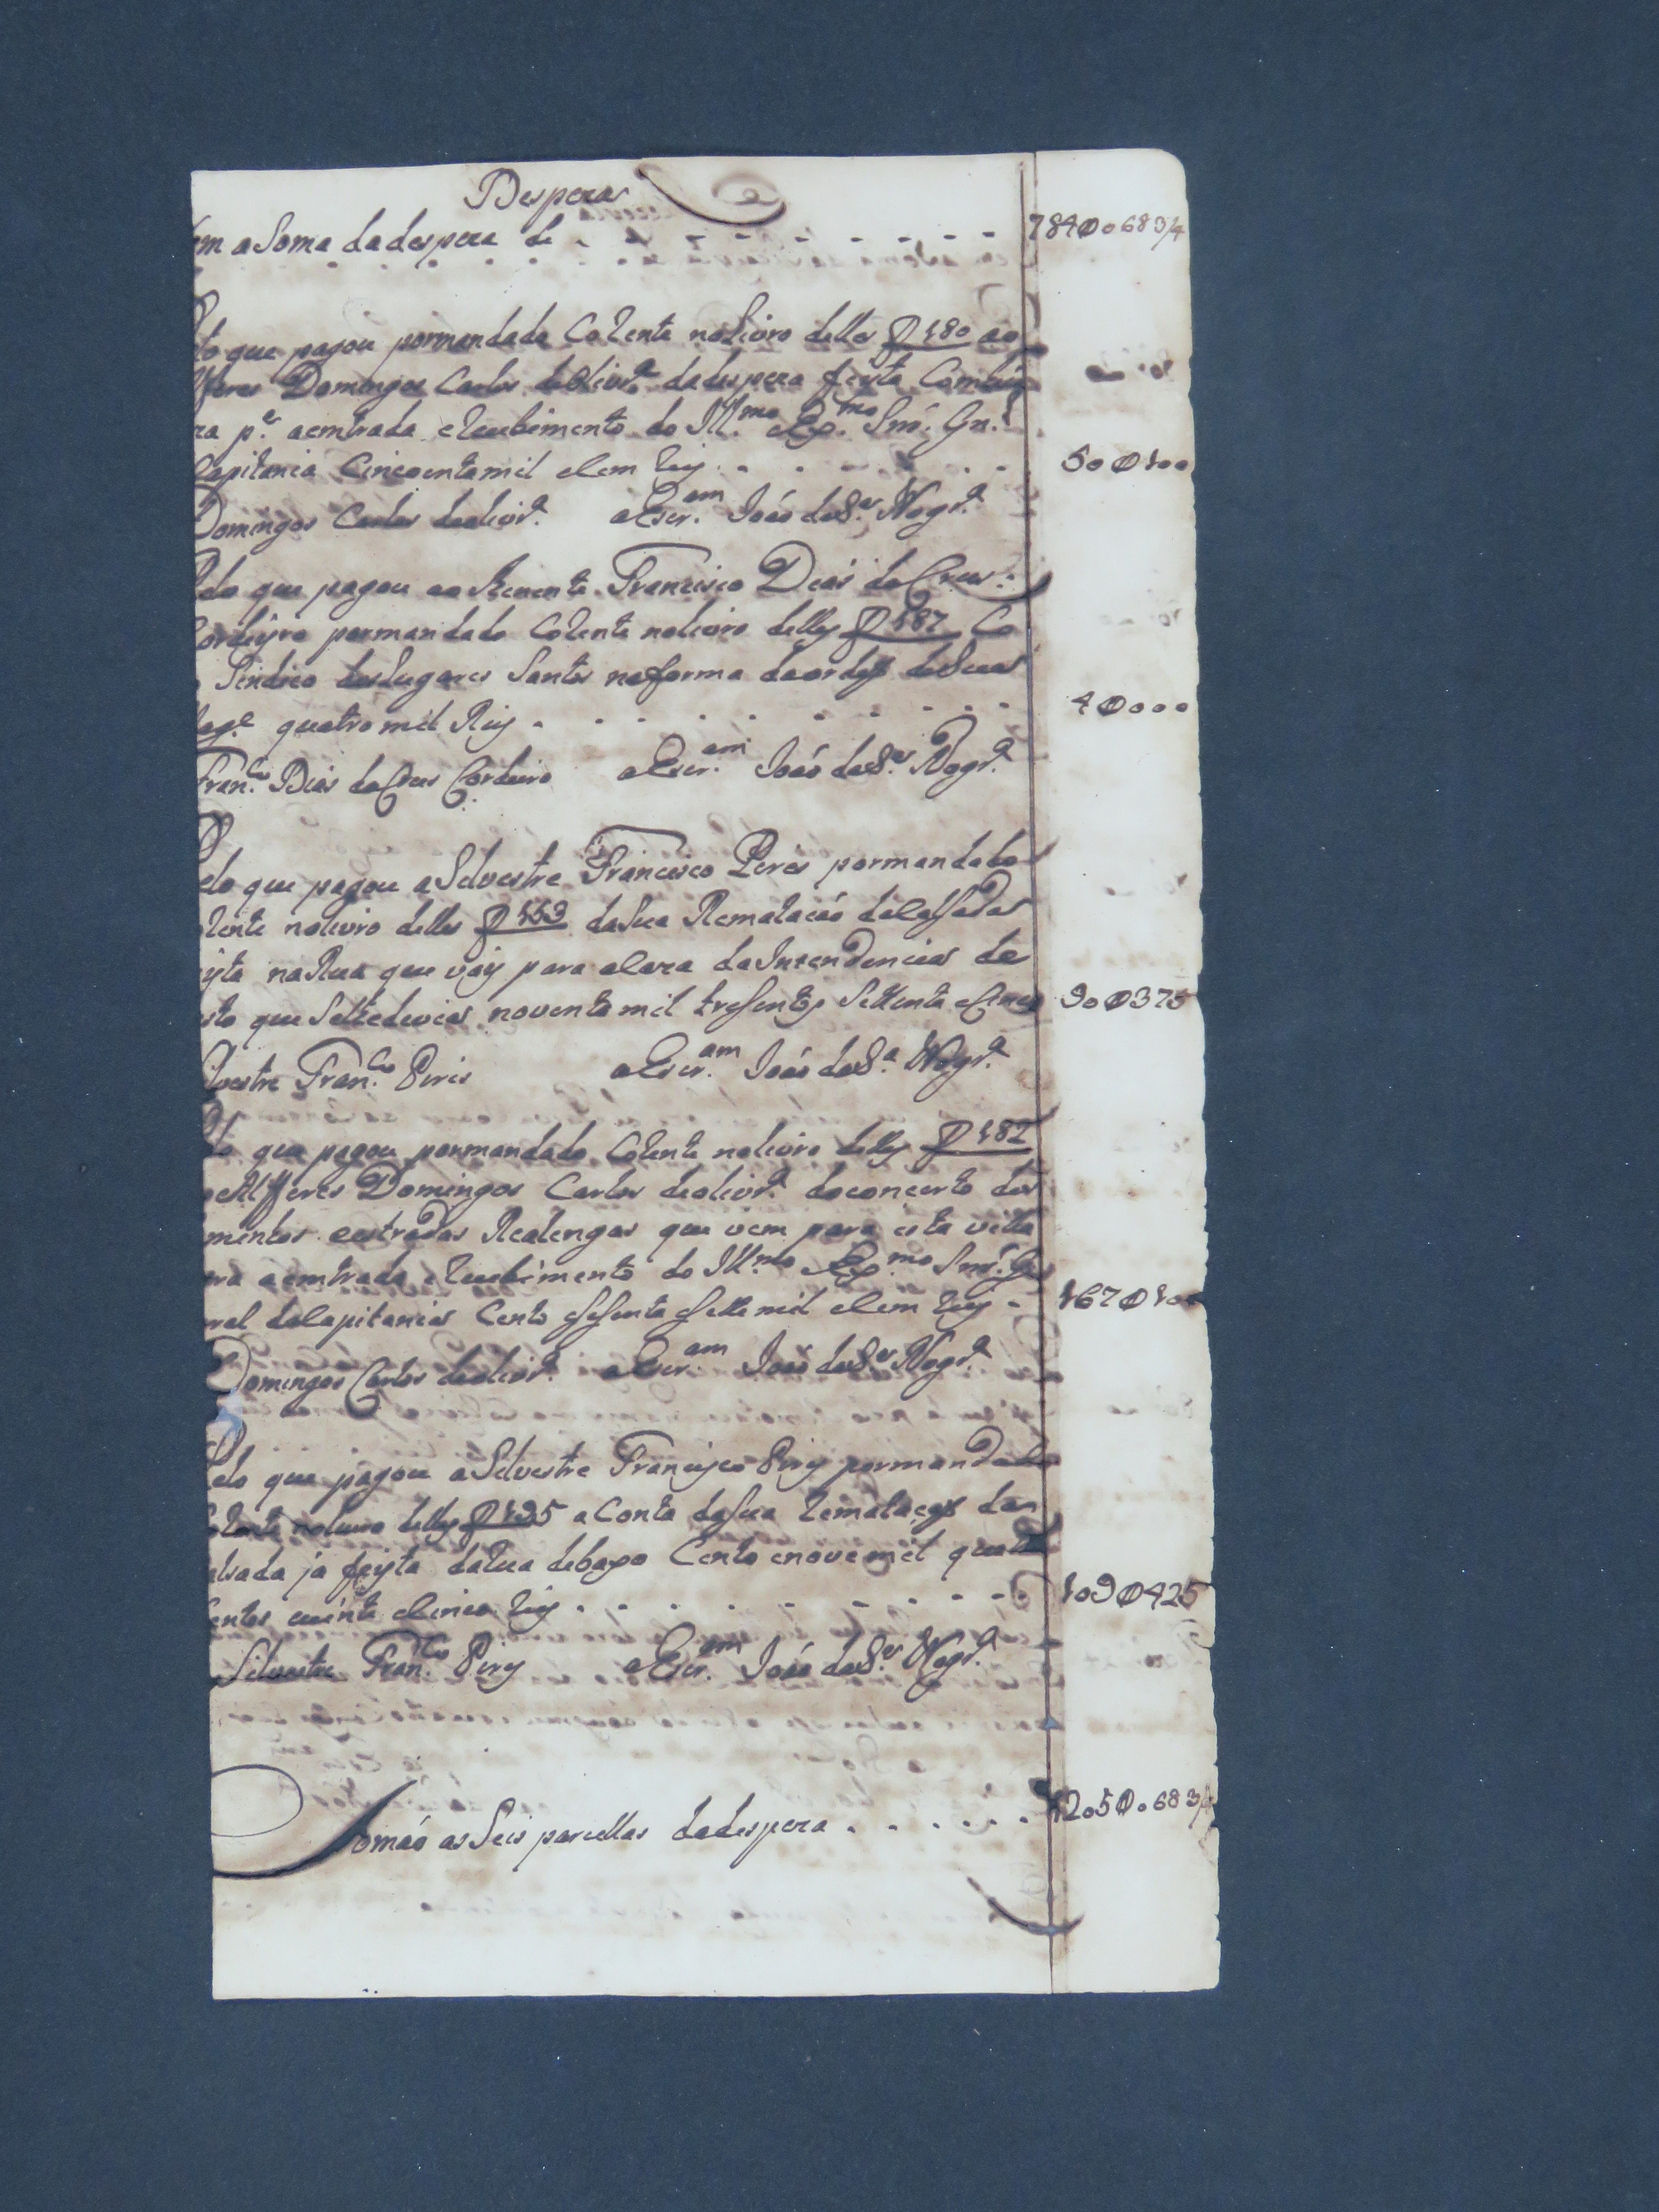 Despeza
em a Soma dadespeza de 784$068 3/4
lo que pagou pormandado Corrente noLivro delles f 180 ao
lferes Domingos Carlos deolivr.ª dadespeza feyta Com
ra p.ª aemtrada e Recebimento do Ill.mo e Ex.mo Snr. Gn.l
Capitania Cincoentamil e Cem Reis 50$100
Domingos Carlos deolivr.ª oEscr.am João daS.ª Nogr.ª
elo que pagou ao Thenente Francisco Dias da Crus
Cordeyro pormandado Corrente nolivro delles f 187 Co
Sindico dosLugares Santos naforma daordem deSua
Mag.e quatro mil Reis 4$000
Fran.co Dias da Crus Cordeiro oEscr.am João daS.ª Nogr.ª
elo que pagou aSelvestre Francisco Pires pormandado
rrente nolivro delles f 163 daSua Rematacão daCalsada
yta naRua que vay para aCaza daIntendencia de
sto que Selhedevia noventa mil tresentos Settenta eCinco 90$375
lvestre Fran.co Pires oEscr.am João daS.ª Nogr.ª
lo que pagou pormandado Corrente nolivro delles f 182
oAlfferes Domingos Carlos deolivr.ª doconcerto dos
mentos eestradas Realengas que vem para esta villa
ra aemtrada e Recebimento do Ill.mo e Ex.mo Snr. Ge
ral daCapitania Cento eSesenta eSette mil eCem Reis 167$100
Domingos Carlos deolivr.ª oEscr.am João daS.ª Nogr.ª
Pelo que pagou aSelvestre Francisco Pires pormandado
Corrente nolivro delles f 195 a Conta daSua Rematação da
alsada ja feyta daRua debaxo Cento enovemil quatro
Centos evinte eCinco Reis 109$425
Silvestre Fran.co Pires oEscr.am João daS.ª Nogr.ª
Somão as Seis parcellas dadespeza 1205$068 3/4